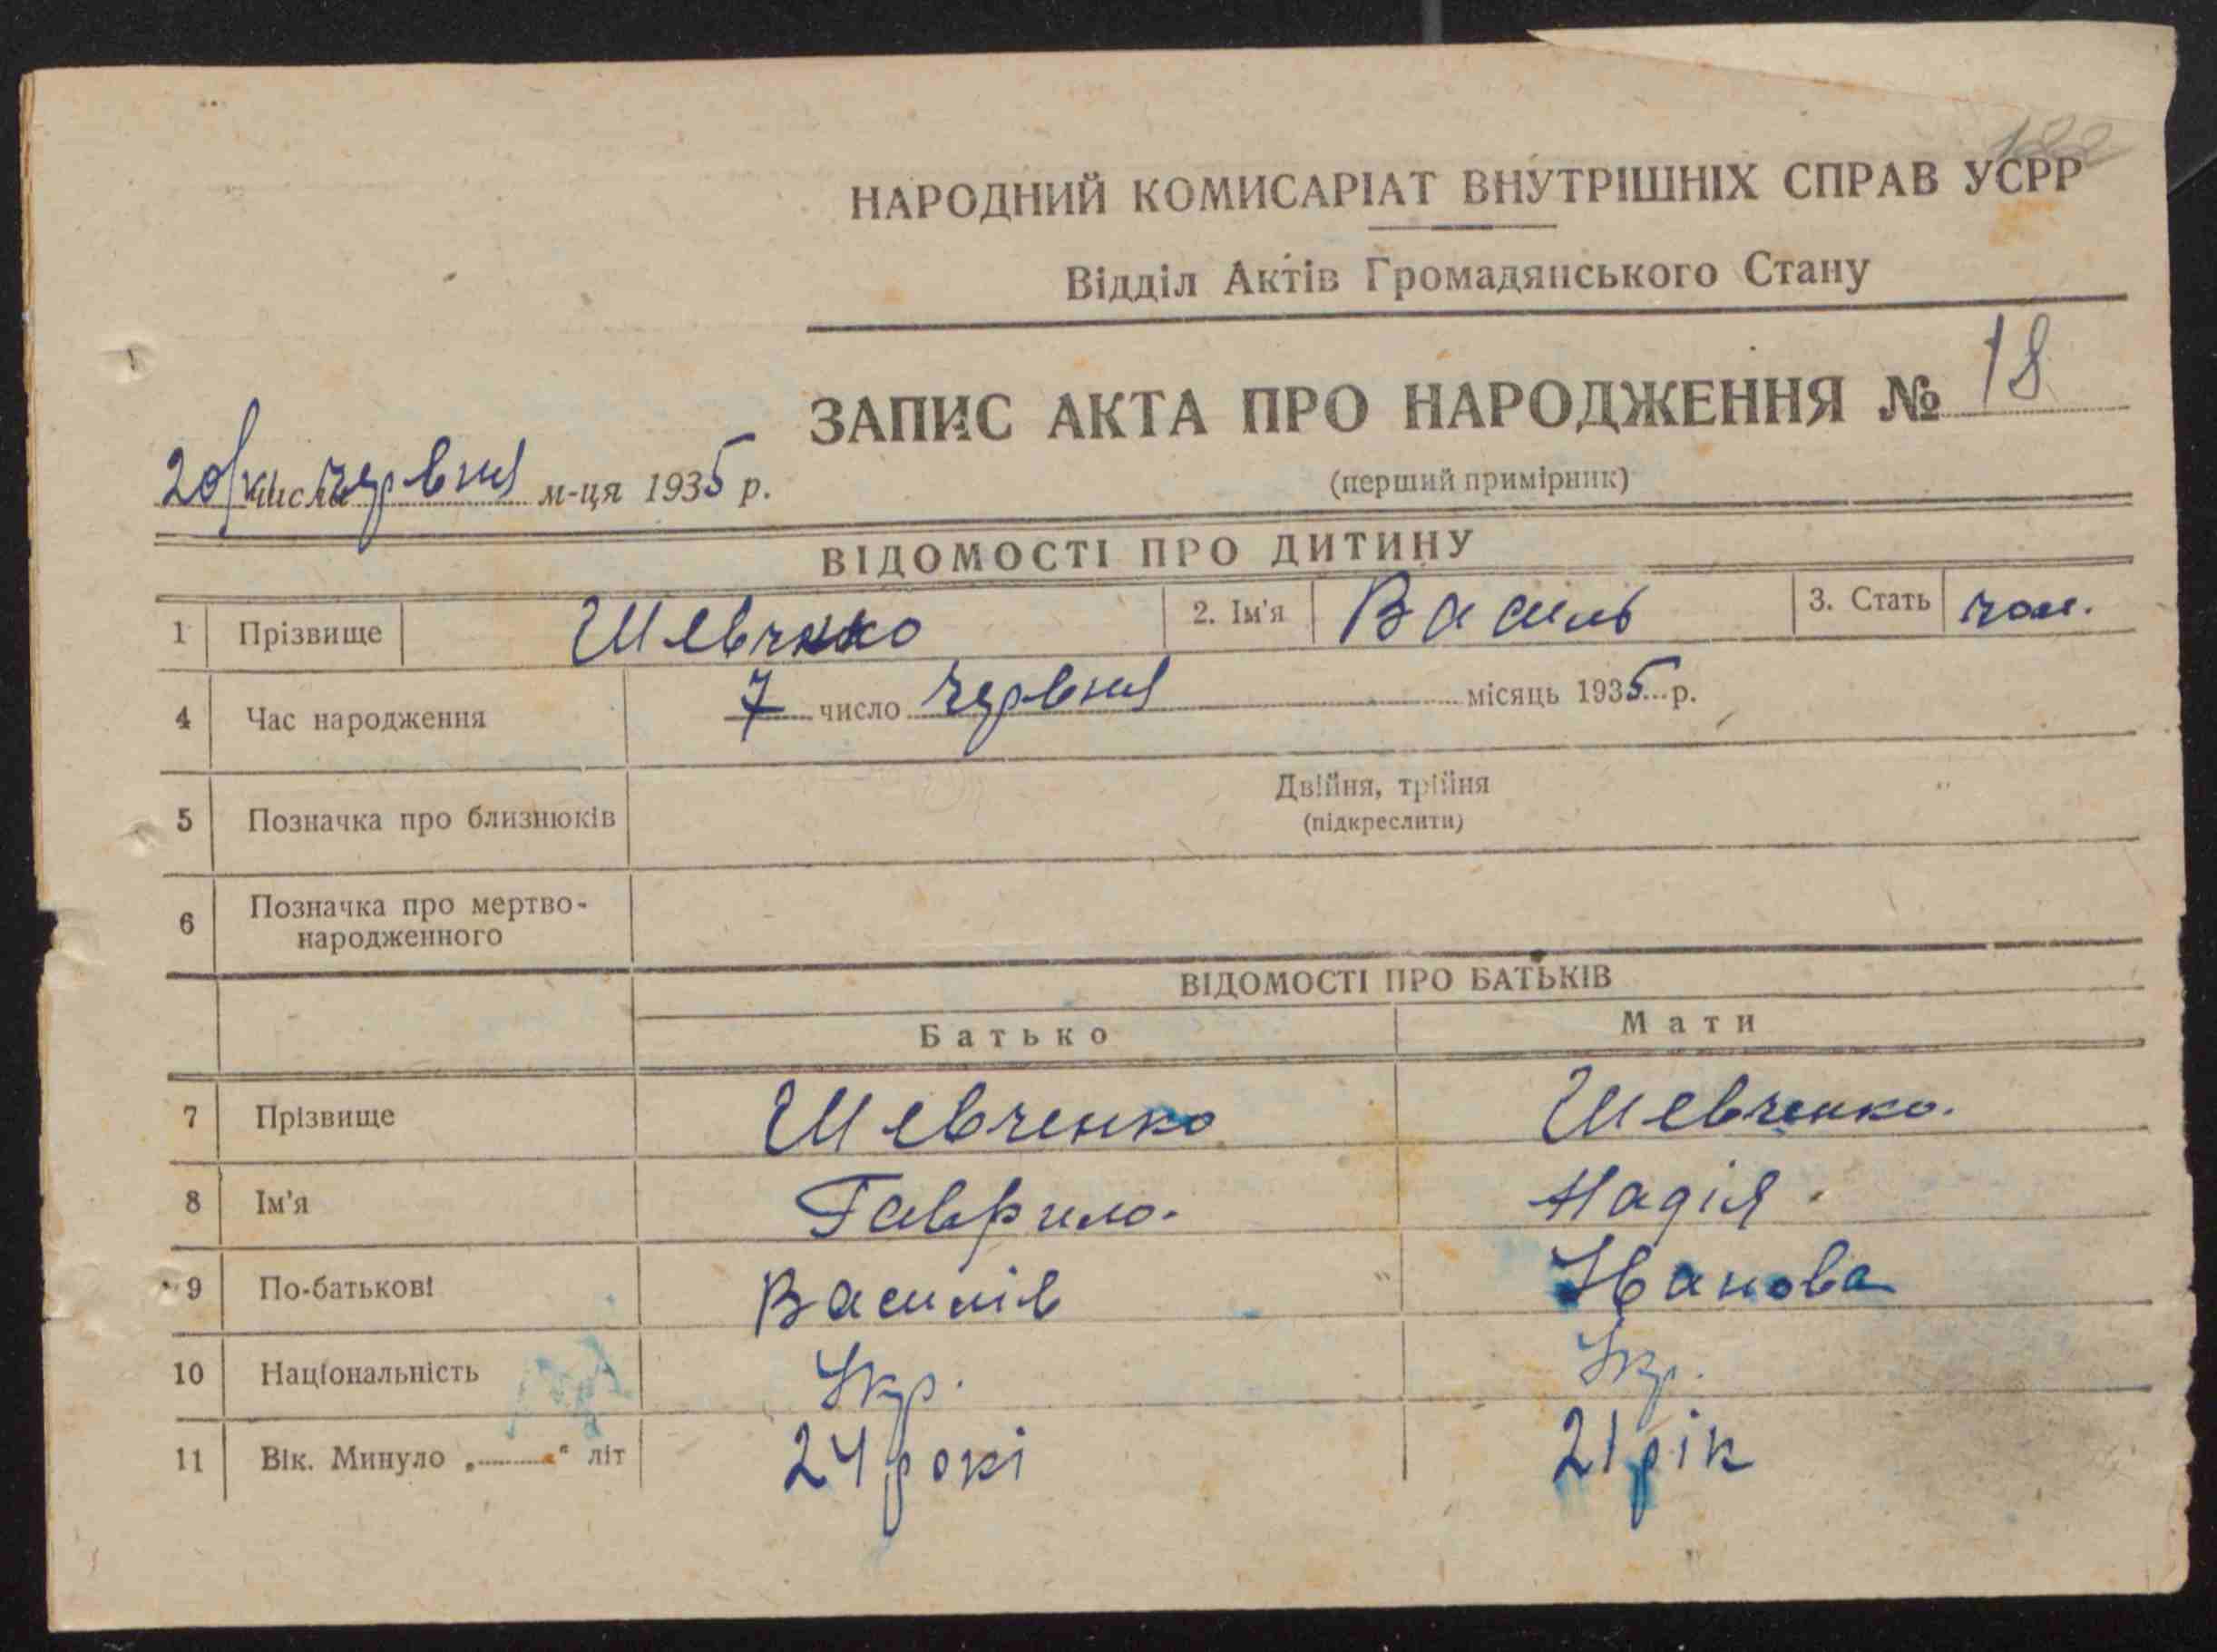 122
НАРОДНИЙ КОМИСАРІАТ ВНУТРІШНІХ СПРАВ УСРР
Відділ Актів Громадянського Стану
ЗАПИС АКТА ПРО НАРОДЖЕННЯ № 18
20 числа червня м-ця 1935 р.
(перший примірник)
ВІДОМОСТІ ПРО ДИТИНУ
1 Прізвище Шевченко 2. Ім'я Василь 3. Стать чол.
4 Час народження 7 число червня місяць 1935 р.
5 Позначка про близнюків Двійня, трійня
(підкреслити)
6 Позначка про мертво-
народженного
ВІДОМОСТІ ПРО БАТЬКІВ
Батько Мати
7 Прізвище Шевченко Шевченко.
8 Ім'я Гаврило. Надія.
9 По-батькові Василів Іванова
10 Національність Укр. Укр.
11 Вік. Минуло „........“ літ 24 рокі 21 рік